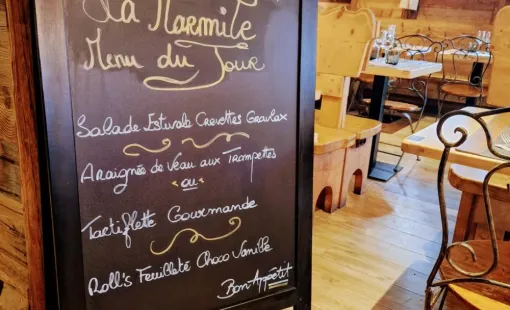 La Marmite
Menu du Jour
Salade Estivale Crevettes Gravlax
Araignée de Veau aux Trompettes
ou
Tartiflette Gourmande
Roll's Feuilleté Choco Vanille
Bon Appétit